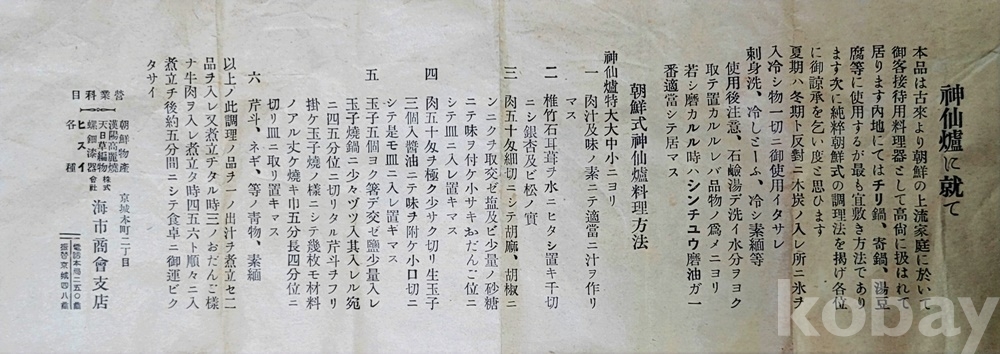 神仙爐に就て
本品は古來より朝鮮の上流家庭に於いて
御客接待用料理器として高尙に扱はれて
居ります内地にてはチリ鍋、寄鍋、湯豆
腐等に使用するが最も宜敷き方法であり
ます次に純粹朝鮮式の調理法を揭げ各位
に御諒承を乞い度と思ひます
夏期ハ冬期ト反對ニ木炭ノ入レ所ニ氷ヲ
入冷シ物一切ニ御使用イタサレ
刺身洗、冷しとーふ、冷シ素麵等
使用後注意、石鹼湯デ洗イ水分ヲヨク
取テ置カルルレバ品物ノ爲メニヨリ
若シ磨カルル時ハシンチユウ磨油ガ一
番適當シテ居マス
朝鮮式神仙爐料理方法
神仙爐特大大中小ニヨリ
一 肉汁及味ノ素ニテ適當ニ汁ヲ作リ
マス
二 椎竹石耳葺ヲ水ニヒタシ置キ千切
ニシ銀杏及ビ松ノ實
三 肉五十匁細切ニシテ胡麻、胡椒〇
ンニク取交ゼ塩及ビ少量ノ砂糖
ニテ味ヲ付ケ小サキおだんご位ニ
シテ皿ニ入レ置キマス
四 肉五十匁ヲ極ク少サク切リ生玉子
三個入醬油ニテ味ヲ附ケ小口切ニ
シテ是モ皿ニ入レ置キマス
五 玉子五個ヨク箸デ交ゼ鹽少量入レ
玉子燒鍋ニ少々ヅツ入其入レル宛
ニ四五分位ニ切リタル芹ヲチフリ
掛ケ玉子燒ノ樣ニシテ幾枚モ材料
ノアル丈ケ燒キ巾五分長四分位ニ
切リ皿ニ取リ置キマス
六 芹斗、ネギ、等ノ靑物、素緬
以上ノ此調理ノ品ヲ一ノ出汁ヲ煮立セ二
品ヲ入レ又煮立チタル時三ノおだんご樣
ナ牛肉ヲ入レ煮立タ時四五六ト順々ニ入
煮立チ後約五分間ニシテ食卓ニ御運ビク
タサイ
營業科目
朝鮮物產
漢陽高麗燒
天日草編物
螺鈿漆器
ヒスイ
各種
京城本町二丁目
株式會社 海市商會支店
電話本局二五〇番
振替京城四八番
kobay